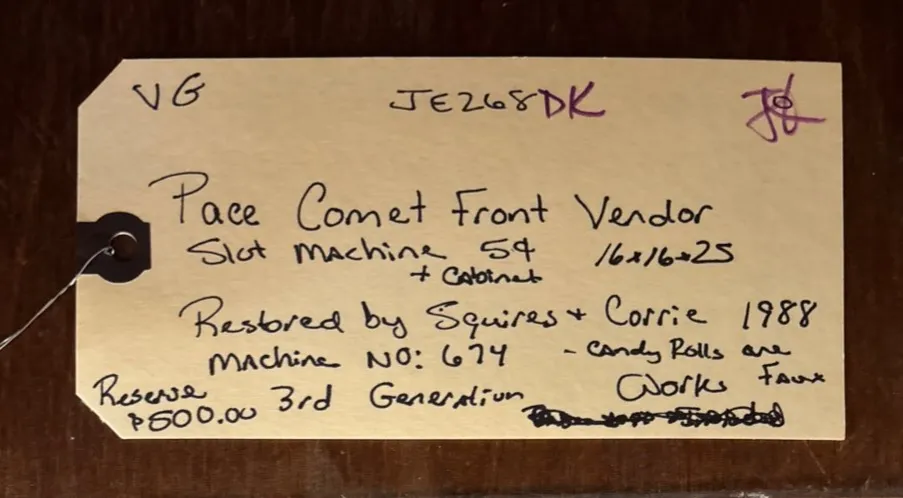 VG JE268DK
Pace Comet Front Vendor
Slot Machine 5¢ 16x16x25
+ Cabinet
Restored by Squires + Corrie 1988
Machine NO: 674 - Candy Rolls are Faux
Reserve $500.00 3rd Generation Works